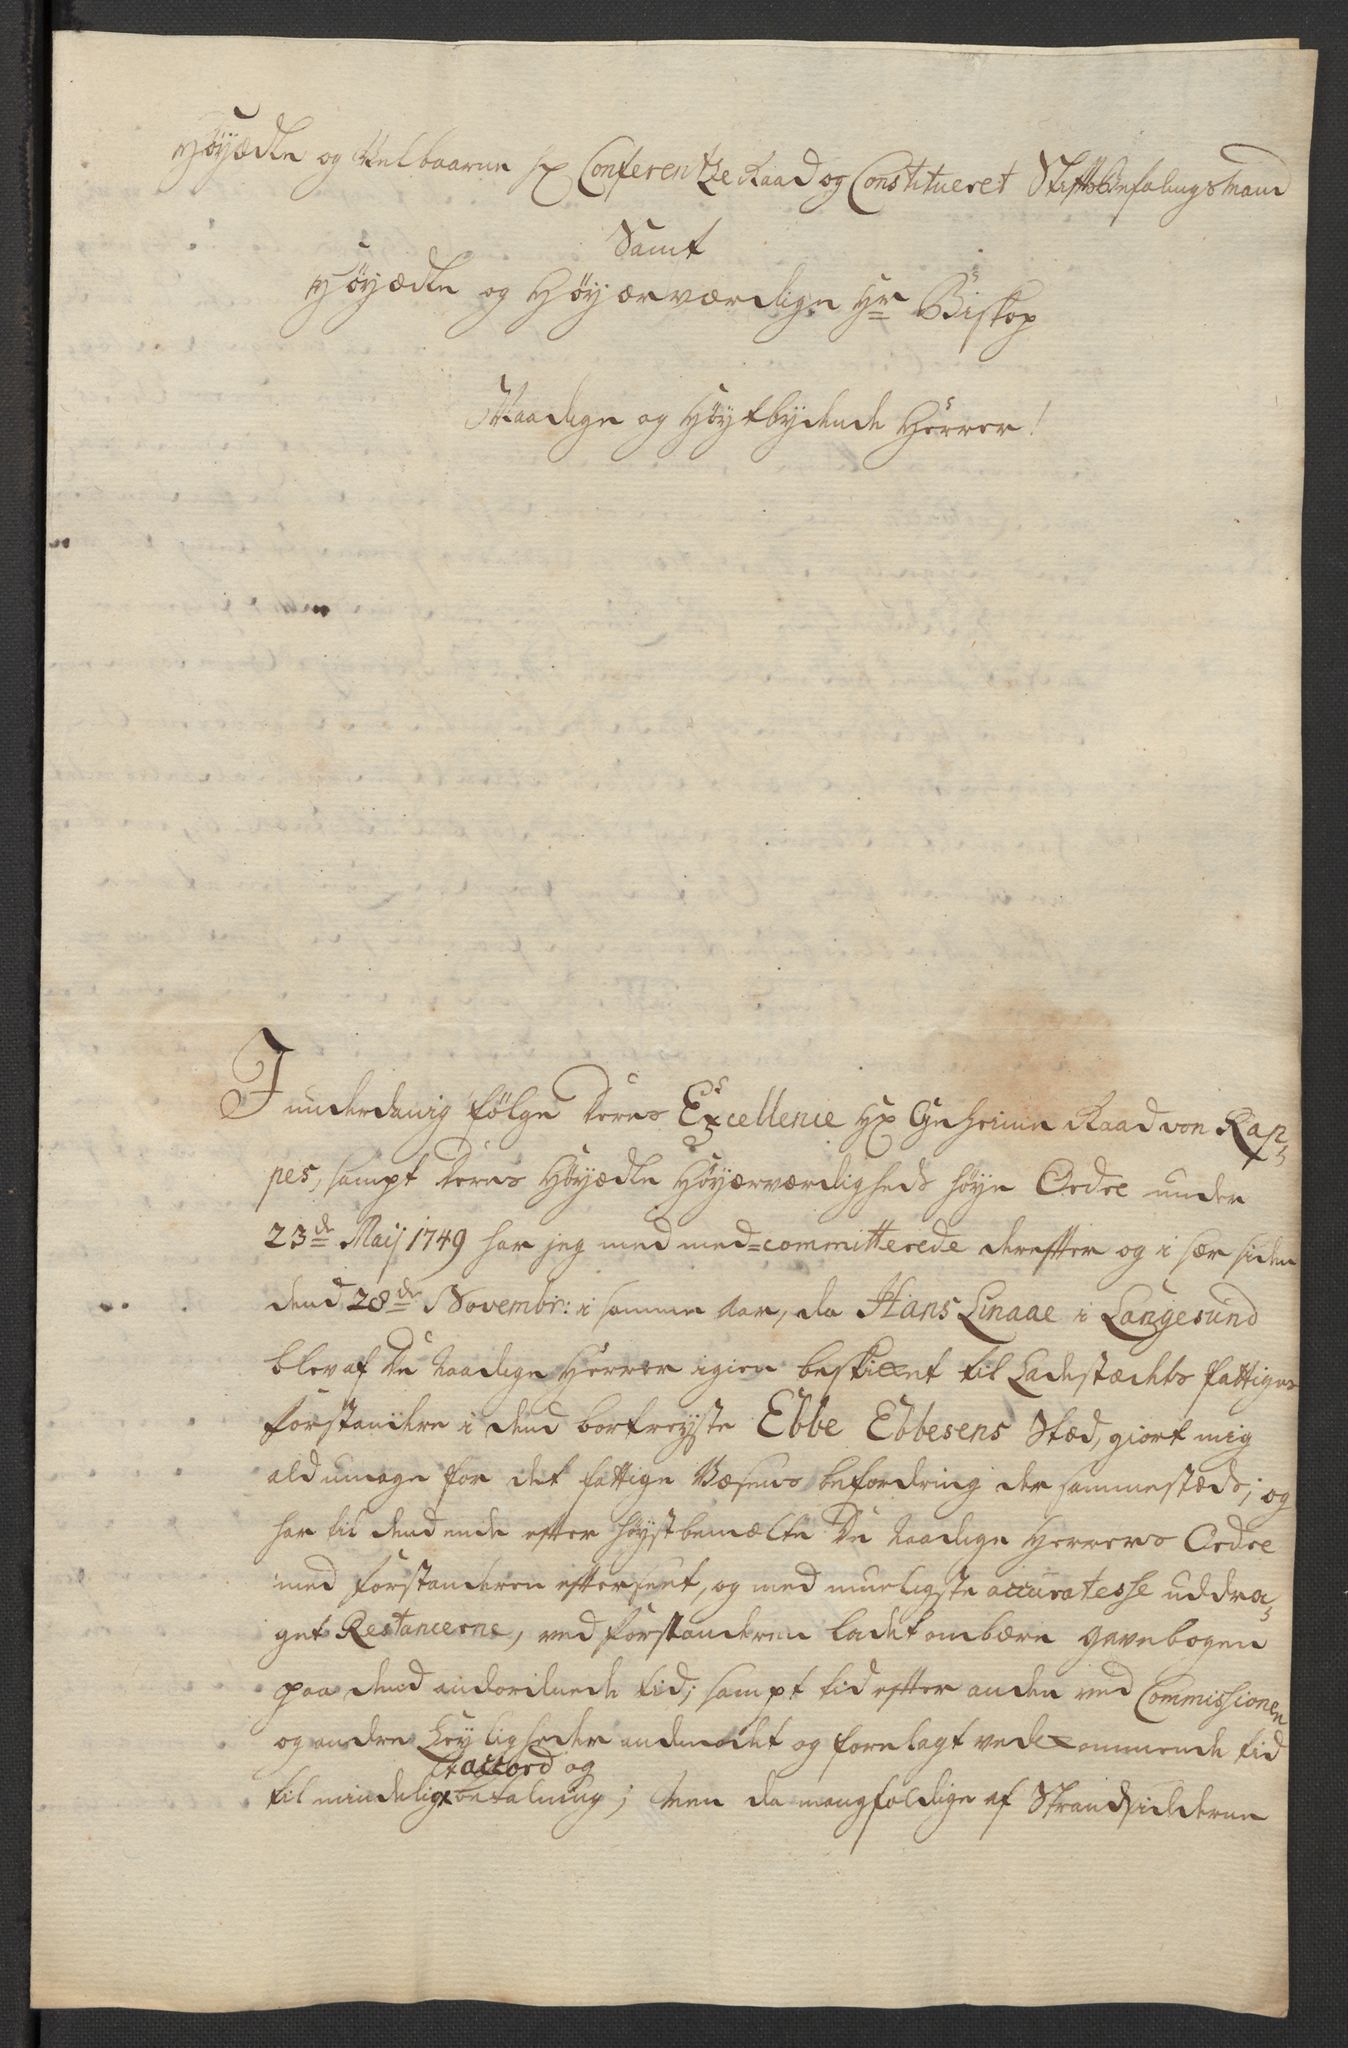 Høyædle og Velbaarne Hr Conferentze Raad og Constitueret Stiftsbefalingsmand
Samt
Høyædle og Høyærværdige Hr Biskop
Naadige og Høytbydende Herrer!
I underdanig følge Deres Excellence Hr Geheime Raad von Rap-
pes, sampt Deres Høyædle Høyærværdigheds høye Ordre under
23de Maij 1749 har jeg med med=committerede derefter og i sær siden
dend 28de Novembr: i samme Aar, da Hans Linaae i Langesund
blev af De Naadige Herrer igien beskicket til Ladestædets fattiges
forstandere i dend bortreyste Ebbe Ebbesens Stæd, giort mig
ald umage for det fattige Væsens befordring der sammestæds; og
har til dend ende efter høystbemælte De Naadige Herrers Ordre
med forstanderen efterseet, og med mueligste accuratesse uddra-
get Restancerne, ved forstanderen ladet ombære gavebogen
paa dend anordnede tid; sampt tid efter anden ved Commissionen
og andre Leyligheder anmodet og forelagt vedkommende tid
accord og
til mindelig betalning; Men da mangfoldige af Strandsidderne